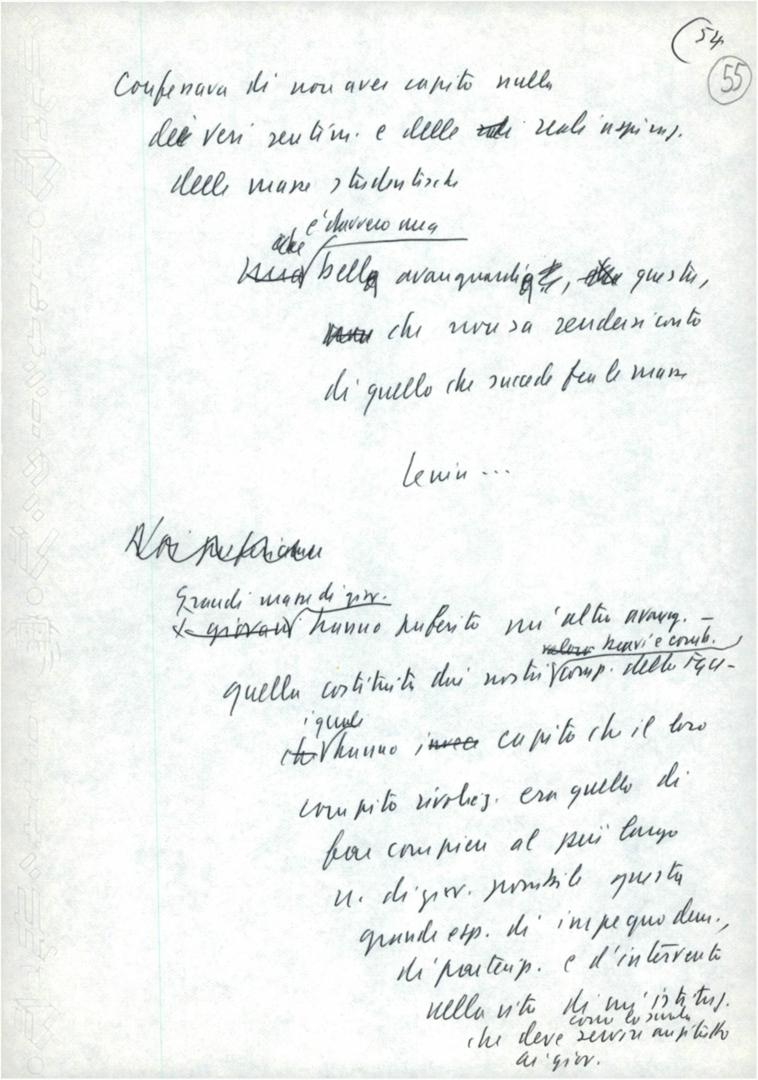 (54
55
Confessava di non aver capito nulla
dei veri sentim. e delle reali aspiraz.
delle masse studentesche
è davvero una
che
una bella avanguardia, questa,
che non sa rendersi conto
di quello che succede fra le masse
Lenin ...
Noi preferiamo
Grandi masse di giov.
I giovani hanno preferito un'altra avang. –
bravi e comb.
quella costituita dai nostri comp. della FGCI –
i quali
che hanno invece capito che il loro
compito rivoluz. era quello di
far compiere al più largo
n. di giov. possibile questa
grande esp. di impegno dem.,
di partecip. e d'intervento
nella vita di un'istituz.
come la scuola
che deve servire anzitutto
ai giov.